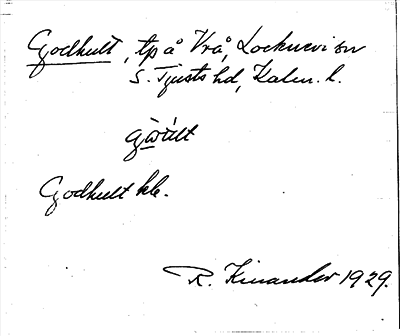 Godhult, tp å Vrå, Locknevi sn
S. Tjusts hd, Kalm. l.
Godhult hk.
R. Kinander 1929.